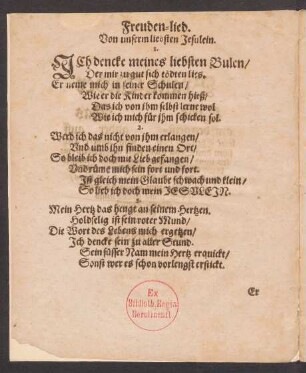 Freuden-lied.
Von unserm liebsten Jesulein.
1.
ICh dencke meines liebsten Bulen/
Der mir zu gut sich tödten lies.
Er neme mich in seiner Schulen/
Wie er die Kinder kommen hieß/
Das ich von ihm selbst lerne wol
Wie ich mich für ihm schicken sol.
2.
Werd ich das nicht von ihm erlangen/
Und umb ihn finden einen Ort/
So bleib ich doch mit Lieb gefangen/
Und rüme mich sein fort und fort.
Ist gleich mein Glaube schwach und klein/
So lieb ich doch mein JESULEIN.
3.
Mein Hertz das henge an seinem Hertzen.
Holdselig ist sein roter Mund/
Die Wort des Lebens mich ergetzen/
Ich dencke sein zu aller Stund.
Sein süsser Nam mein Hertz erquickt/
Sonst wer es schon vorlengst erstickt.
Er
Ex
Biblioth. Regia
Berolinensi